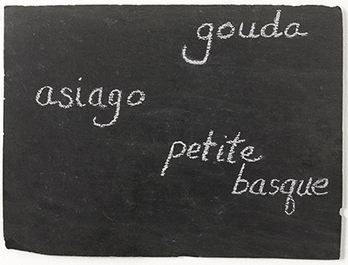 gouda
asiago
petite
basque